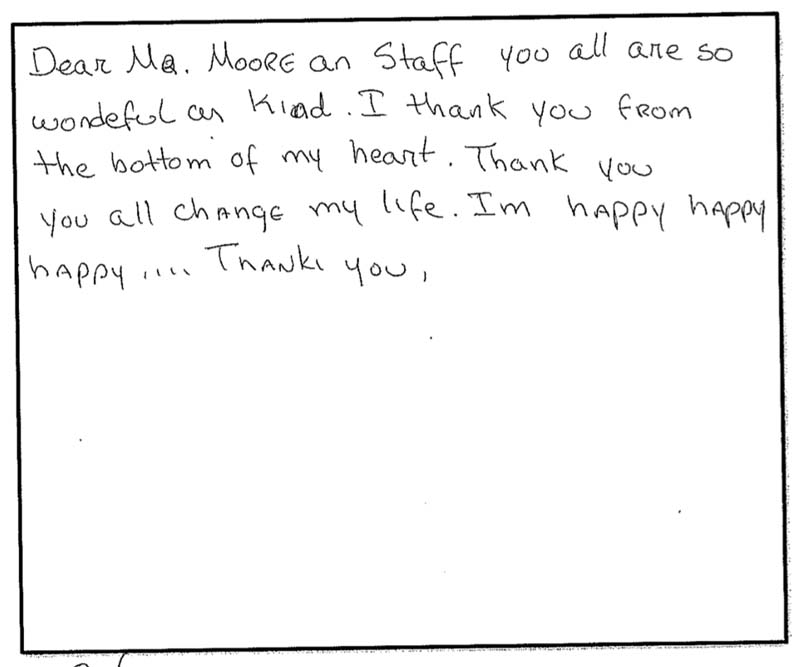 Dear Mr. Moore an Staff you all are so
wondeful an Kind. I thank you from
the bottom of my heart. Thank you
you all change my life. Im happy happy
happy .... Thank you,